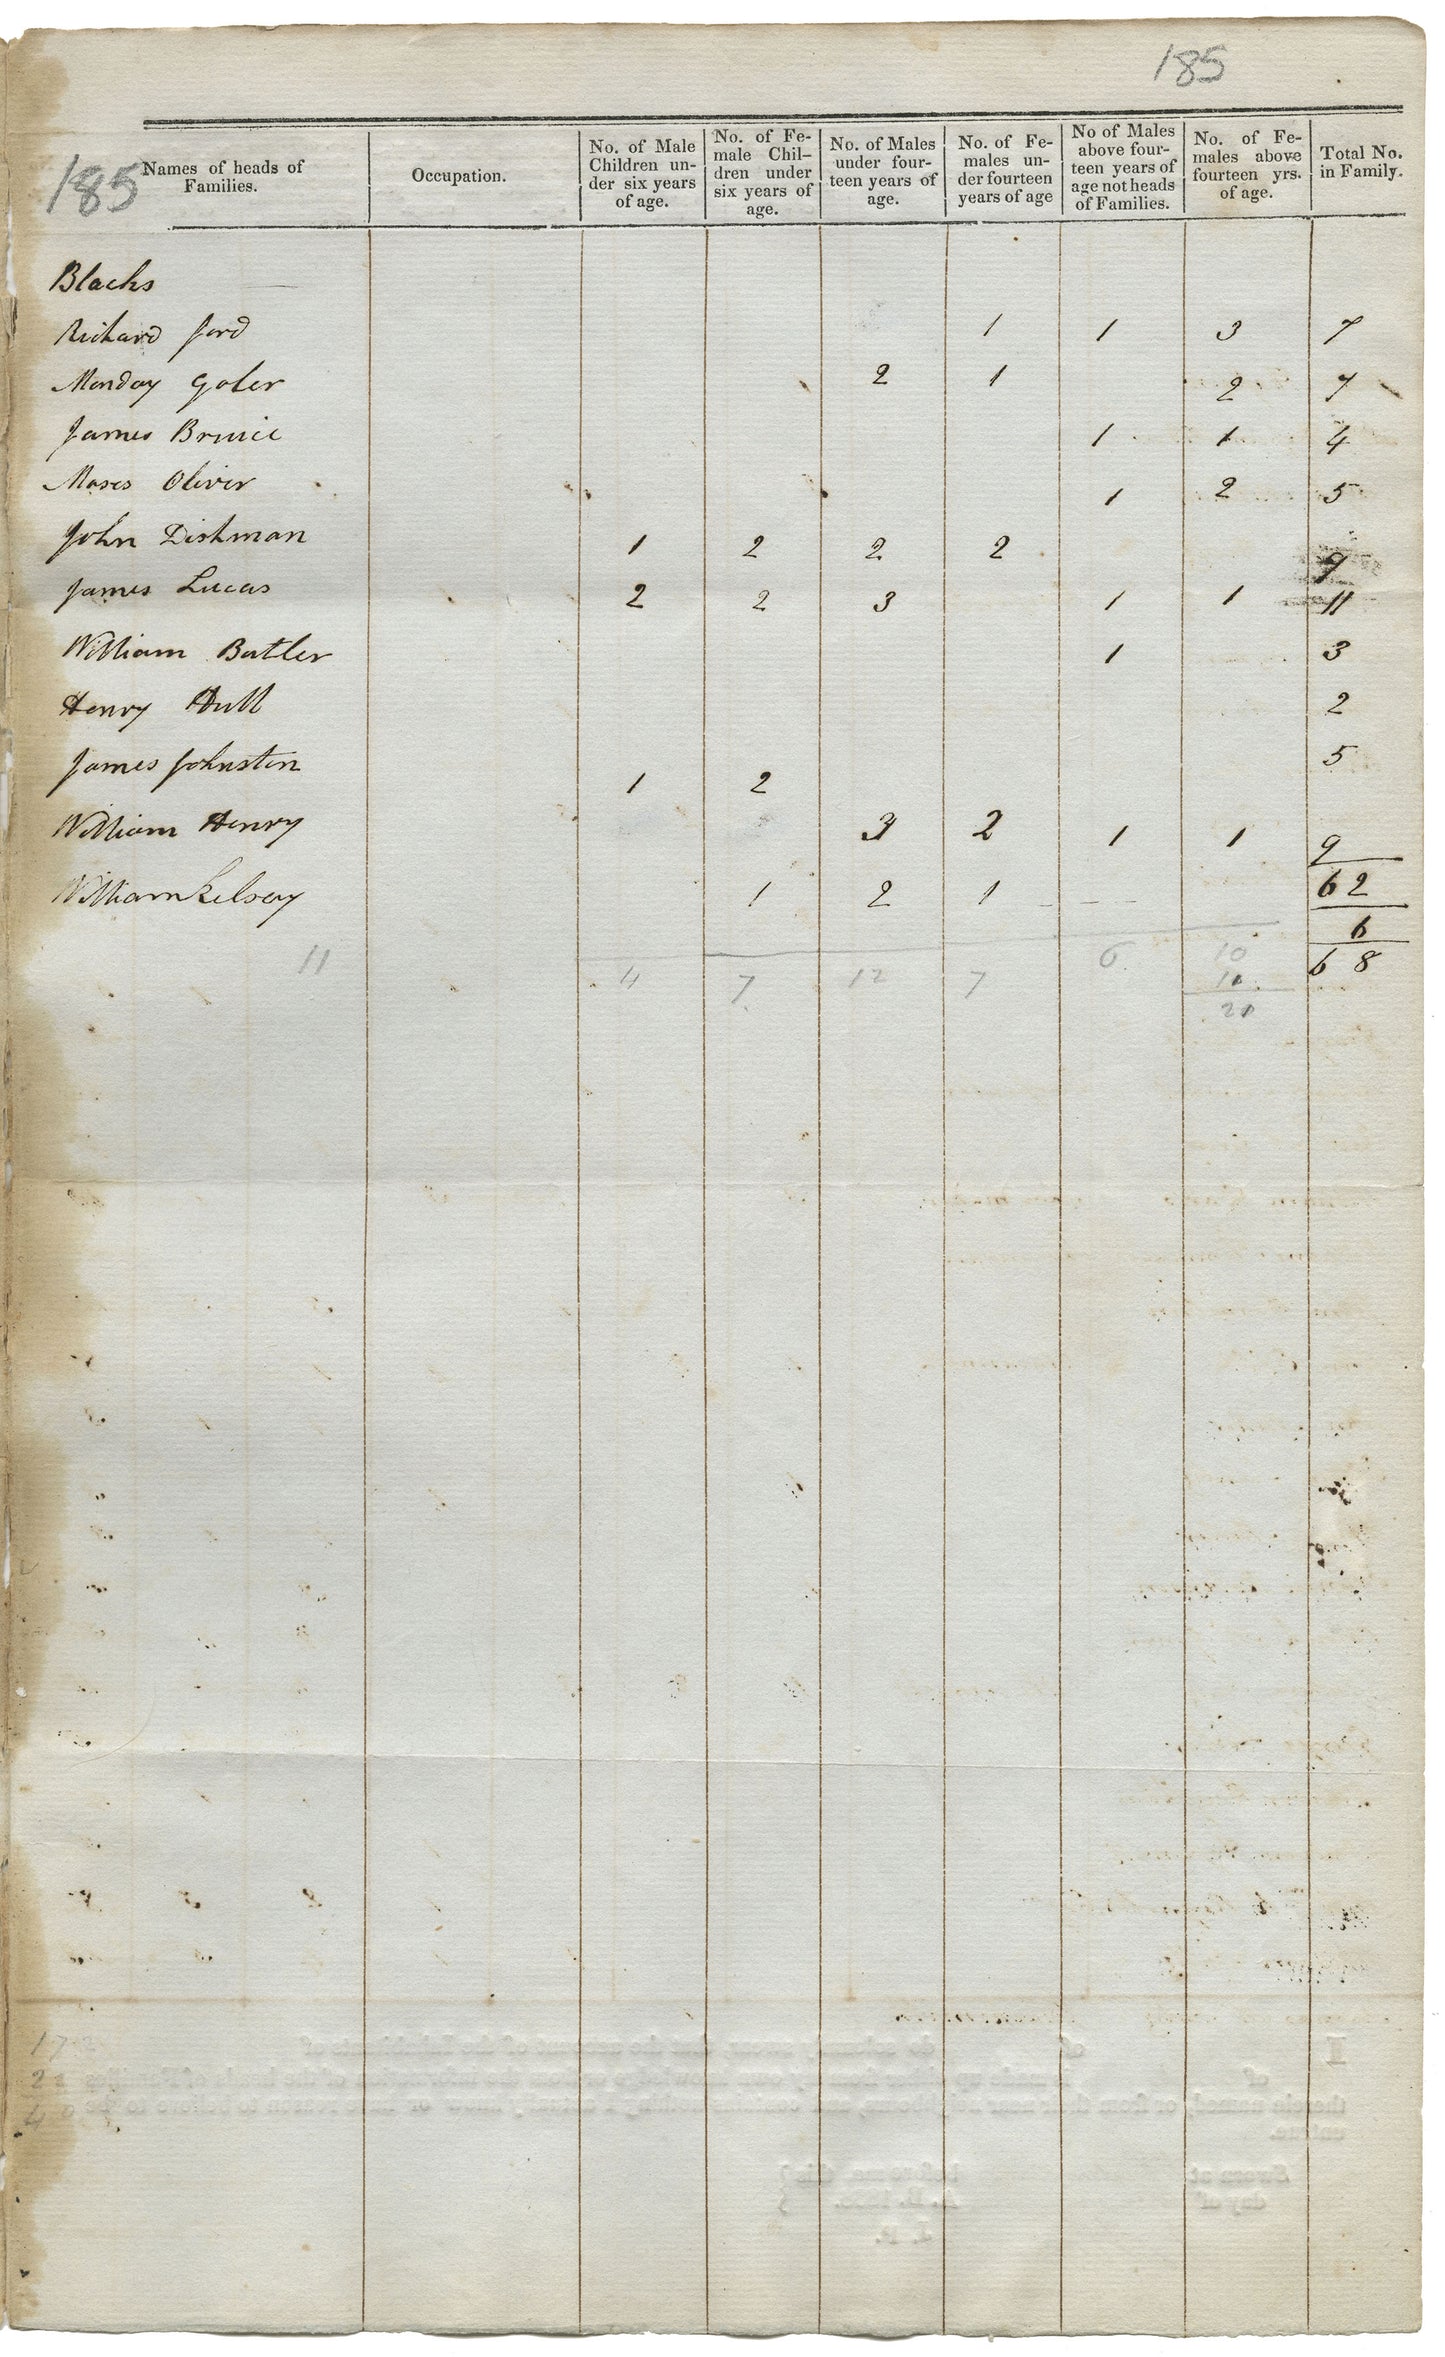 185
185
Names of heads of Families.
Occupation.
No. of Male Children un-der six years of age.
No. of Fe-male Chil-dren under six years of age.
No. of Males under four-teen years of age.
No. of Fe-males un-der fourteen years of age
No of Males above four-teen years of age not heads of Families.
No. of Fe-males above fourteen yrs. of age.
Total No. in Family.
Blacks
Richard Jord 1 1 3 7
Monday Goler 2 1 2 7
James Bruice 1 1 4
Moses Oliver 1 2 5
John Dishman 1 2 2 2 9
James Lucas 2 2 3 1 1 11
William Butler 1 3
Henry Hull 2
James Johnston 1 2 5
William Henry 3 2 1 1 9
William Kelsey 1 2 1 62
6
11 4 7 12 7 6 10 68
11
21